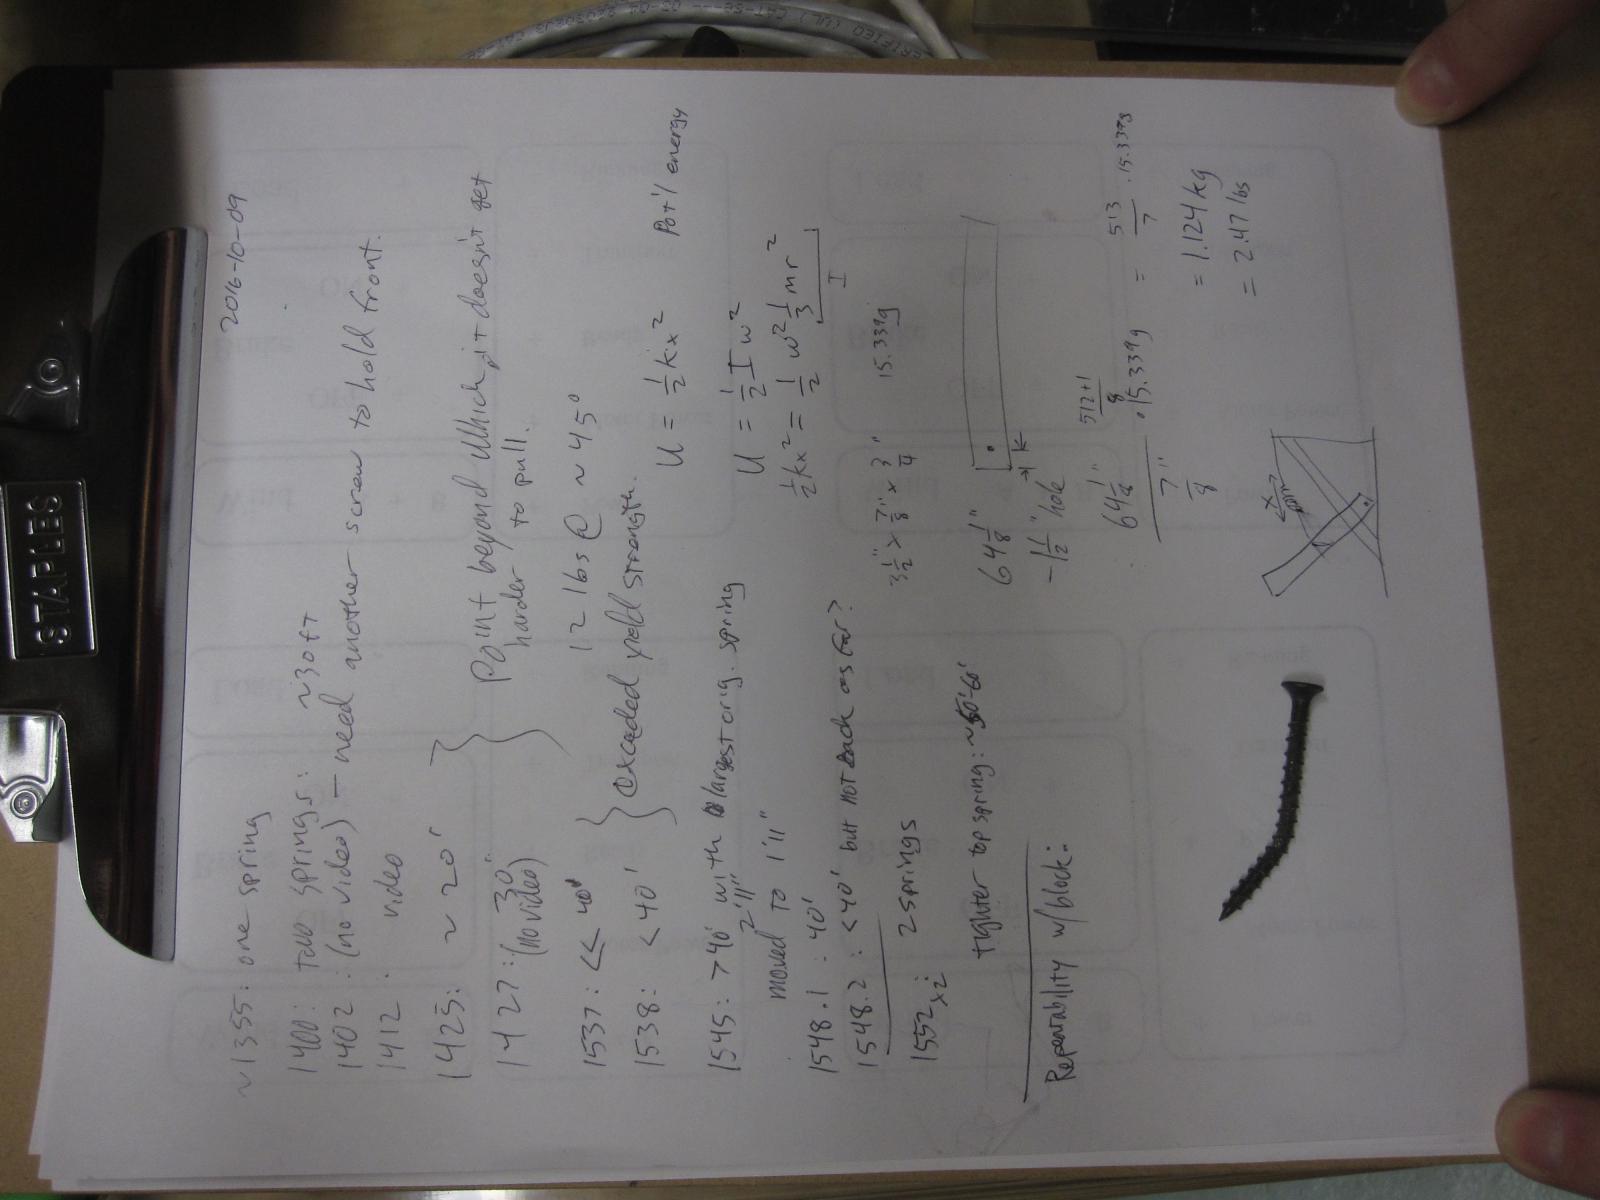 STAPLES
2016-10-09
~1355: one spring
1400: two springs: ~30ft
1402: (no video) - need another screw to hold front.
1412: video
1425: ~20'
Point beyond which it doesn't get
harder to pull.
1427: 30"
(no video)
12 lbs @ ~45°
1537: << 40'
1538: < 40'
exceeded yield strength.
1545: >40' with largest orig. spring
2'11"
moved to 1'11"
1548.1: 40'
1548.2: <40' but not back as far?
1552: 2 springs
x2
tighter top spring: ~50'-60'
Repeatability w/block:
U = 1/2 kx² Pot'l energy
U = 1/2 I w²
1/2 kx² = 1/2 w² 1/3 mr²
I
3 1/2" x 7/8" x 3/4" 15.339g
64 1/8"
-1 1/2" hole
512+1
8
64 1/8" · 15.339g = 513/7 · 15.339g
7/8"
= 1.124 kg
= 2.47 lbs
CERTIFIED (UL) CAT-5E